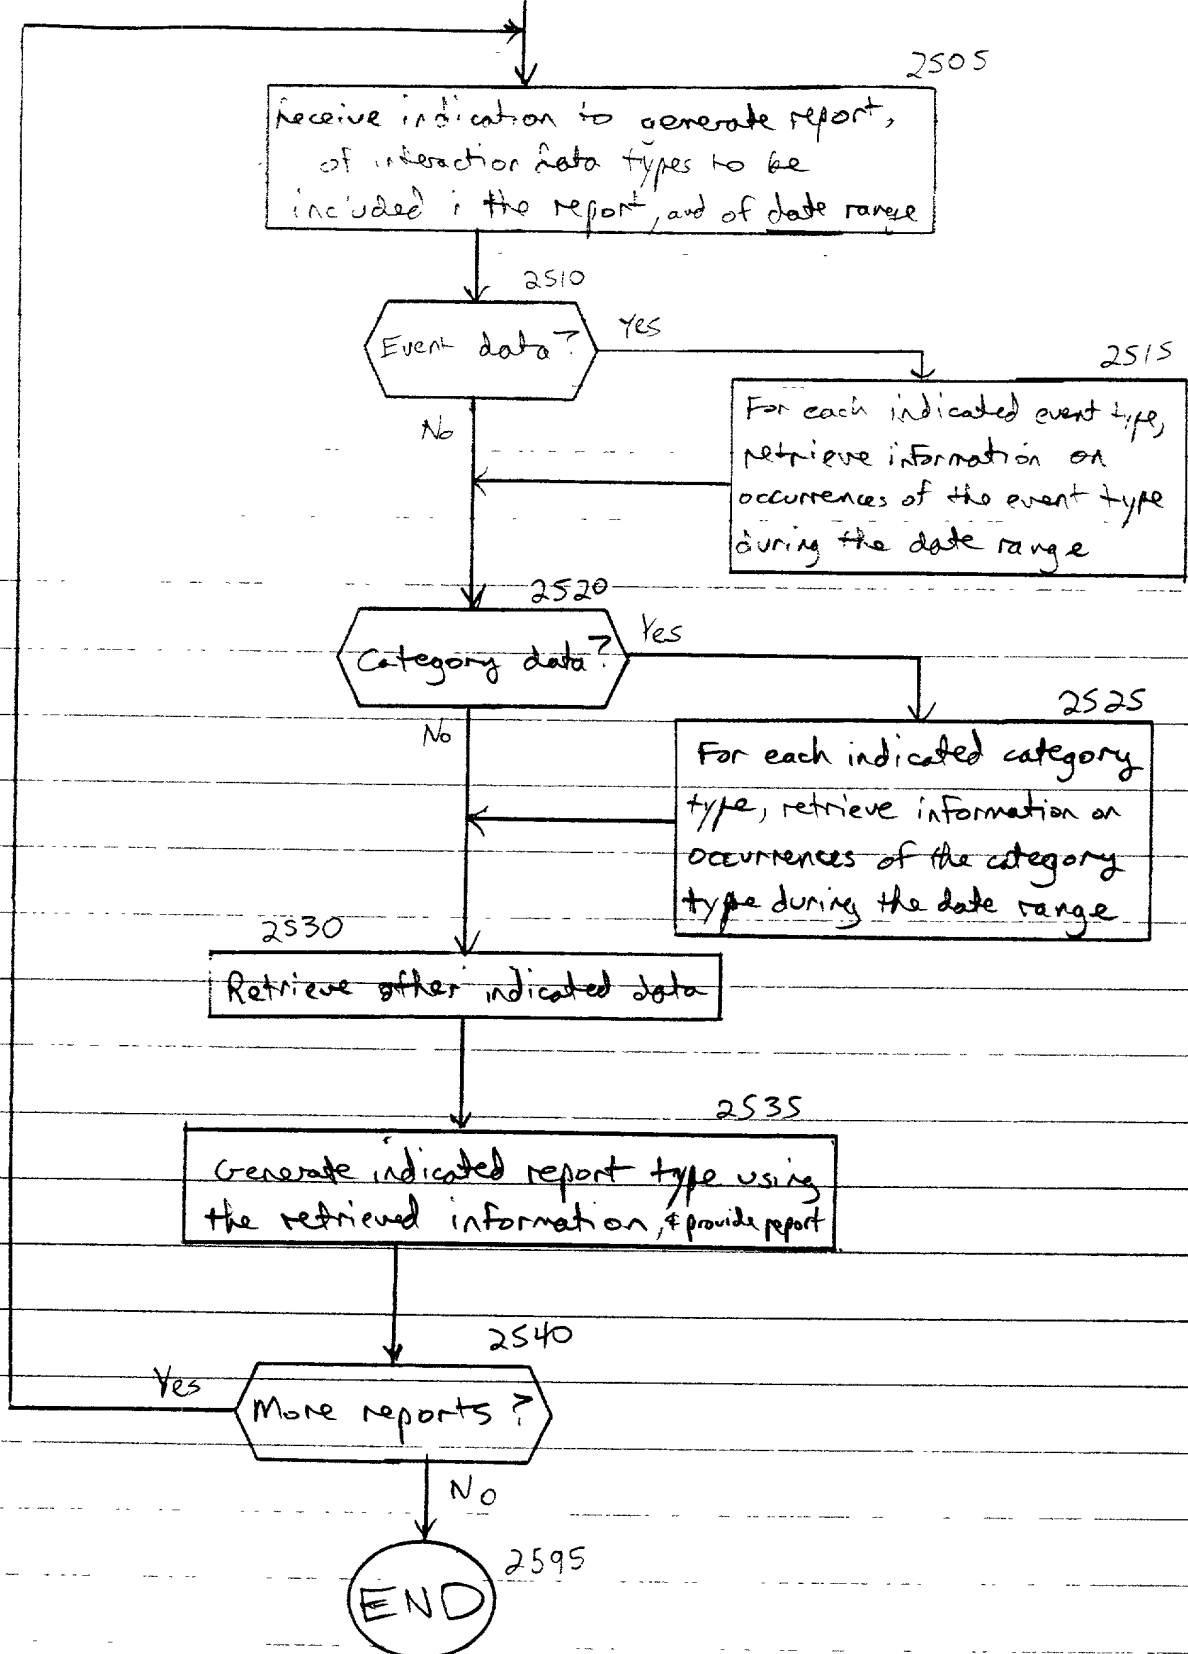 2505
Receive indication to generate report,
of interaction data types to be
included i the report, and of date range
2510
Event data?
Yes
2515
For each indicated event type,
retrieve information on
occurrences of the event type
during the date range
No
2520
Category data?
Yes
2525
For each indicated category
type, retrieve information on
occurrences of the category
type during the date range
No
2530
Retrieve other indicated data
2535
Generate indicated report type using
the retrieved information, & provide report
2540
More reports?
Yes
No
2595
END